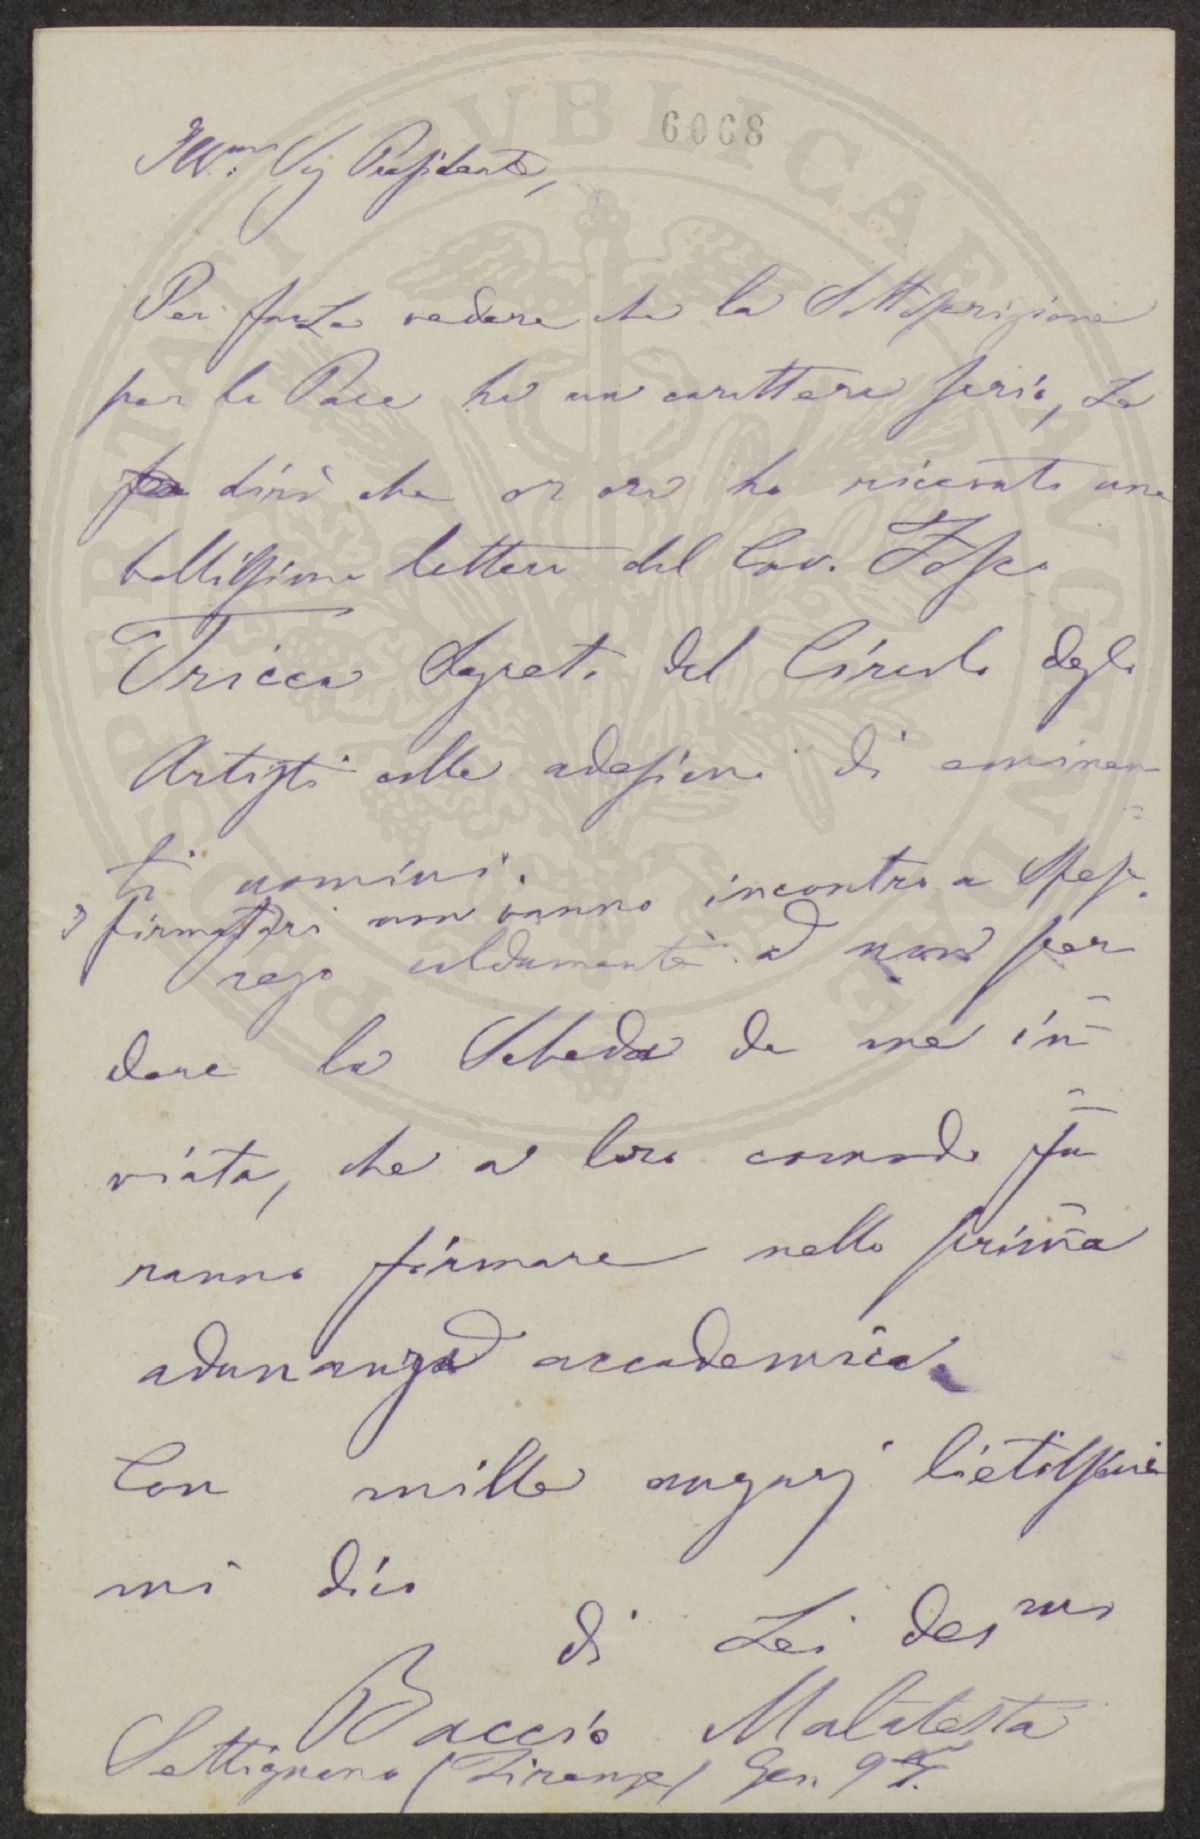 6068
Illmo. Sig Presidente,
Per farLe vedere che la Sottoscrizione
per la Pace ha un carattere serio, Le
dirò che or ora ho ricevuto una
bellissima lettera del Cav. Tosca
Tricca Segret. del Circolo degli
Artisti colle adesioni di eminen
ti uomini.
I firmatari non vanno incontro a spese.
rego caldamente a non per
dere la Scheda da me in
viata, che a loro comodo fa
ranno firmare nella prima
adunanza accademica.
Con mille augurj lietissimi
mi dico
di Lei devmo
Baccio Malatesta
Settignano (Firenze) Gen. 95.
PVBLICAE
PROSPERITATI